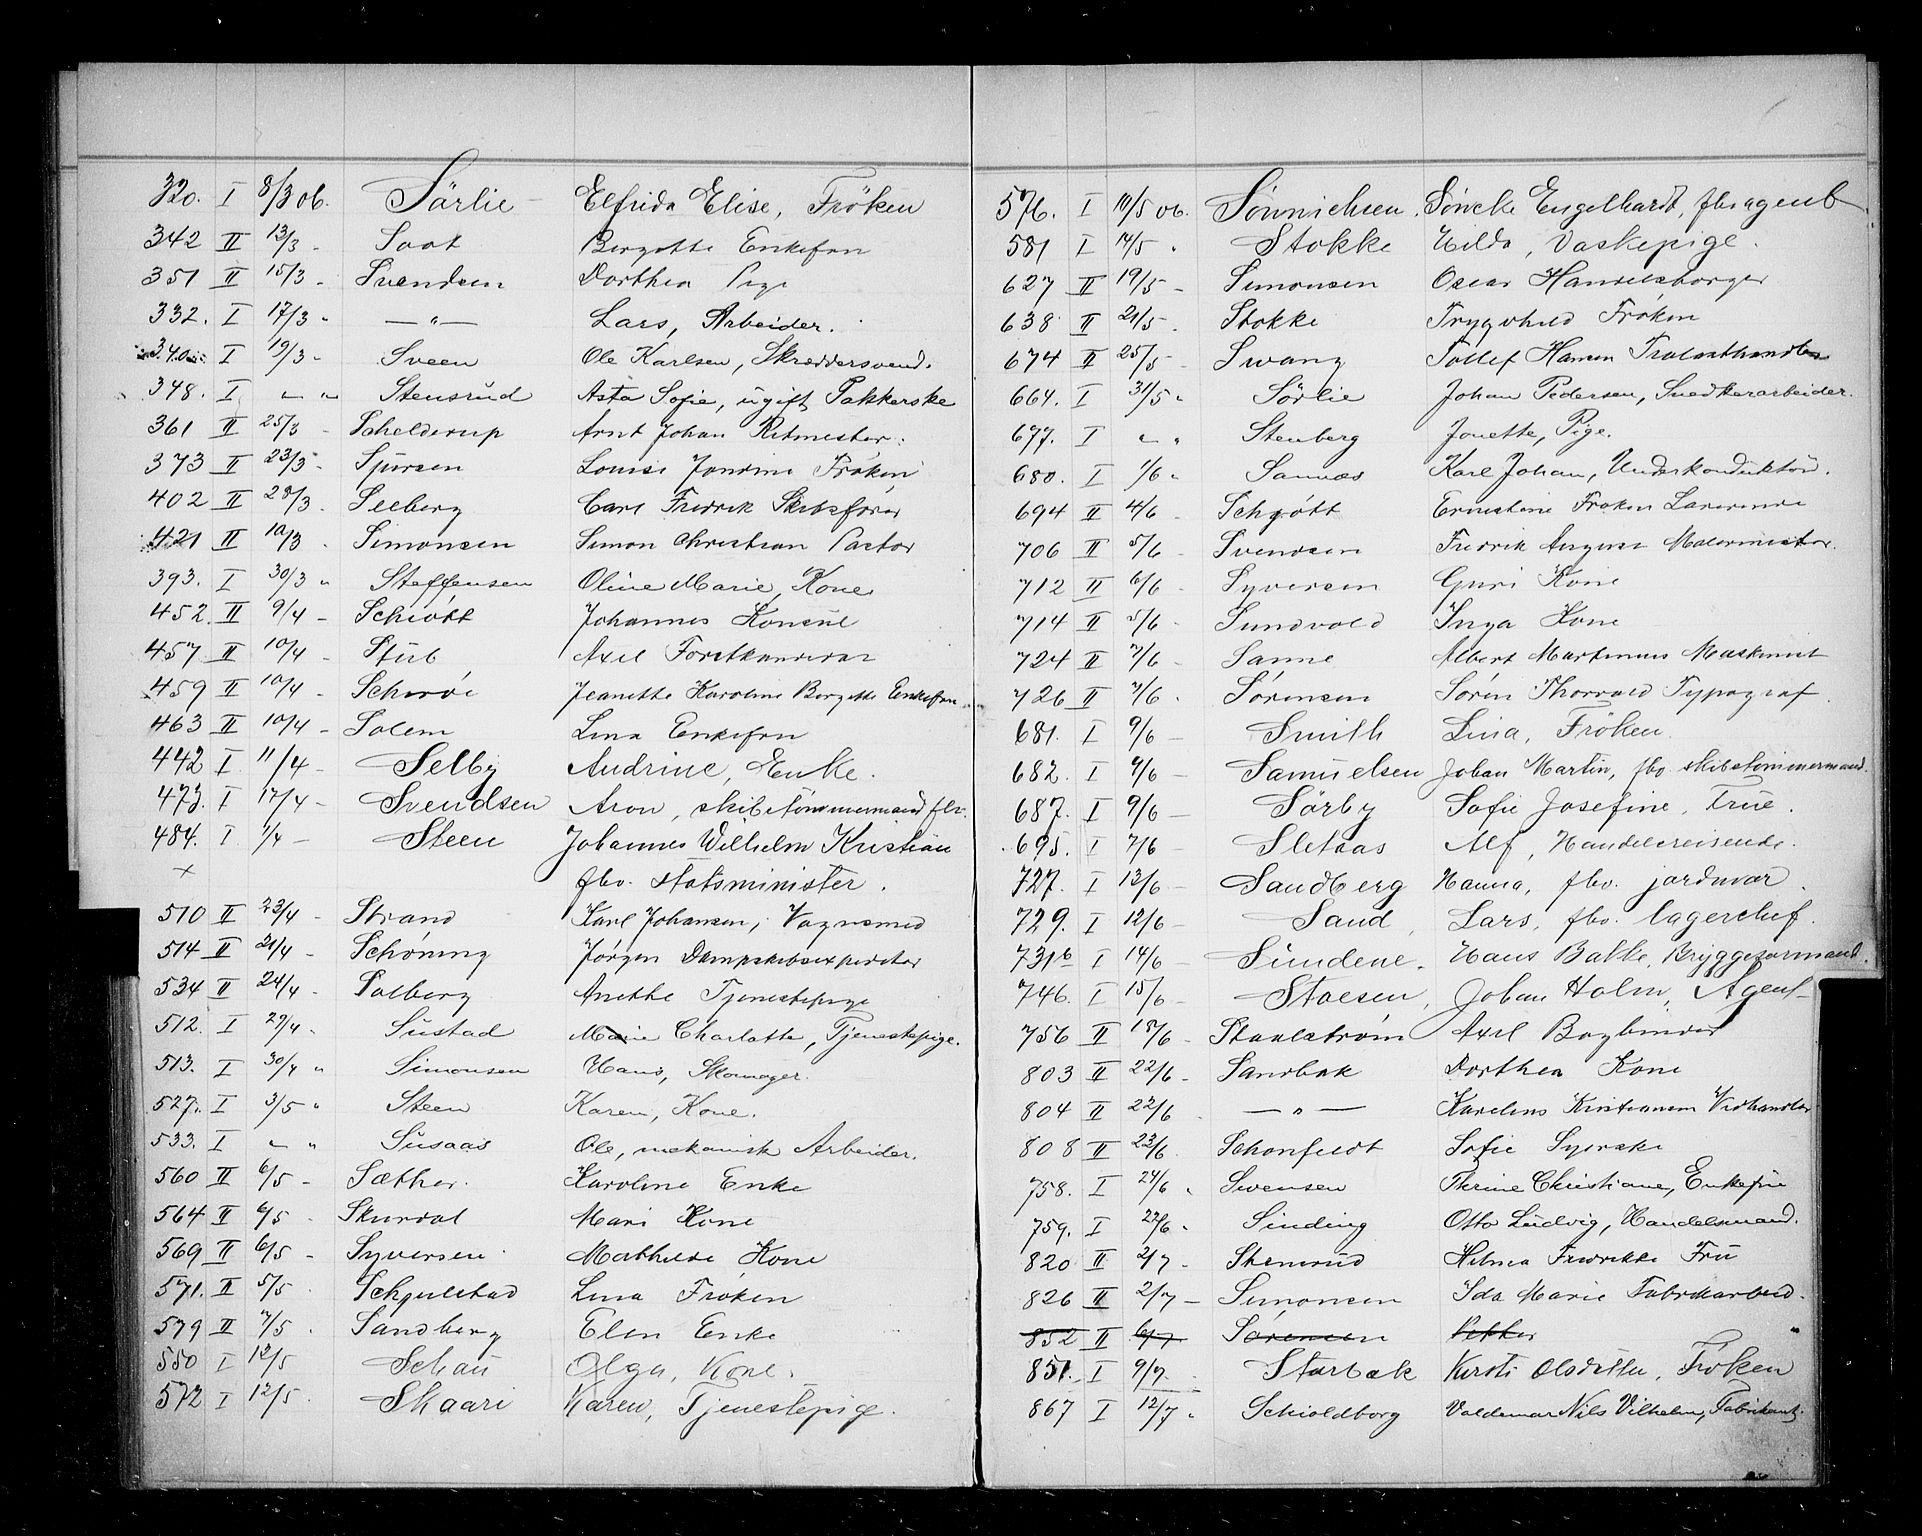 320. I 8/3 06. Sörlie Elfrida Elise, Fröken
342 II 13/3 - Soot Bergette Enkefru
351 II 15/3 - Svendsen Dorthea Pige
332. I 17/3 " —"— Lars, Arbeider.
340 I 19/3 - Sveen Ole Karlsen, Skræddersvend.
348. I " " Stensrud Asta Sofie, ugift Pakkerske
361 II 25/3 - Schelderup Arnt Johan Ritmester.
373 II 23/3 - Sjursen Louise Jondine Frøken
402 II 28/3 - Seeberg Carl Fredrik Skibsfører
421 II 10/3 - Simonsen Simon Christian Pastor
393. I 30/3 " Steffensen Oline Marie, Kone
452. II 9/4 - Schiött Johannes Konsul
457 II 10/4 - Stub Axel Forstkandidat
459 II 10/4 - Schirøe Jeanette Karoline Bergette Enkefru
463 II 10/4 - Solem Lina Enkefru
442 I 11/4 - Selby Andrine, Enke.
473. I 17/4 - Svendsen Aron, skibstömmermand fhv.
484. I 1/4 - Steen Johannes Wilhelm Kristian
+ fhv. statsminister.
510 II 23/4 - Strand Karl Johansen, Vognsmed
514 II 21/4 - Schöning Jørgen Dampskibsexpeditør
534 II 24/4 - Solberg Anethe Tjenestepige
512. I 29/4 " Sustad Marie Charlotte, Tjenestepige.
513. I 30/4 " Simonsen Hans, Skomager.
527. I 3/5 " Steen Karen, Kone.
533. I " " Susaas Ole, mekanisk Arbeider.
560 II 6/5 - Sæther. Karoline Enke
564 II 6/5 - Skurdal Mari Kone
569 II 6/5 - Syversen Mathilde Kone
571. II 5/5 - Schjelstad Lina Frøken
579 II 7/5 - Sandberg Elen Enke
550 I 12/5 Schau Olga, Kone.
572 I 12/5 . Skaari Karen, Tjenestepige.
576. I 10/5 06. Sönnichsen, Söncke Engelhardt, fhv agent
581 I 14/5 " Stokke Hilda, Vaskepige.
627 II 19/5 - Simonsen Oscar Handelsborger
638 II 21/5 - Stokke Trygvhild Frøken
674 II 25/5 - Swang Tollef Hansen Trælasthandler
664. I 31/5 " Sörlie Johan Pedersen, Snedkerarbeider.
677. I " " Stenberg Jonette, Pige.
680. I 1/6 " Sannæs Karl Johan, Underkonduktör.
694 II 4/6 - Schjött Ernestine Frøken Lærerinde
706 II 5/6 - Svendsen Fredrik August Malermester.
712 II 6/6 - Syversen Guri Kone
714 II 5/6 - Sundvold Inga Kone
724 II 7/6 - Sanne Albert Martinius Maskinist
726 II 7/6 - Sørensen Sören Thorvald Typograf
681. I 9/6 - Smith Lina, Fröken.
682. I 9/6 - Samuelsen Johan Martin, fhv. skibstömmermand.
687. I 9/6 - Sörby Sofie Josefine, Frue.
695. I 7/6 - Sletaas Alf, Handelsreisende.
727. I 13/6 - Sandberg Hanna, fhv. jordmor.
729. I 12/6 - Sand, Lars, fhv. lagerchef.
731b I 14/6 - Sundene Hans Balke, Bryggeformand.
746. I 15/6 - Stoesen, Johan Holm, Agent
756 II 18/6 - Staalstrøm Axel Bogbinder
803 II 22/6 - Sandbak Dorthea Kone
804 II 22/6 —"— Karelius Kristiansen Vedhandler
808 II 23/6 Schonfeldt Sofie Syerske
758. I 24/6 " Svensen Thrine Christiane, Enkefru
759. I 22/6 " Sinding Otto Ludvig, Handelsmand.
820 II 2/7 - Stensrud Hilma Fredrikke Fru
826 II 2/7 - Simonsen Ida Marie Fabrikarbeid.
852 II 6/7 Sørensen Petter
851. I 9/7. Starbak Kirsti Olsdatter, Fröken
867 I 12/7 " Schioldborg Valdemar Nils Vilhelm, Fabrikant.